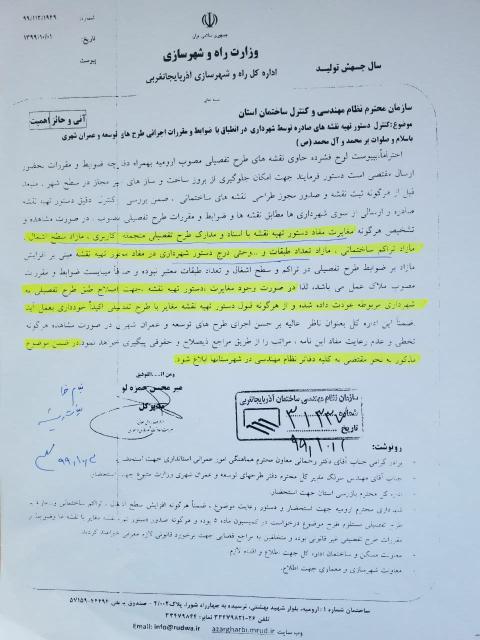 شماره: ۹۹/۱۱۲/۱۹۴۹
تاریخ: ۱۳۹۹/۱۰/۰۱
پیوست
جمهوری اسلامی ایران
وزارت راه و شهرسازی
اداره کل راه و شهرسازی آذربایجانغربی
سال جهش تولید
بسمه تعالی
آنی و حائز اهمیت
سازمان محترم نظام مهندسی و کنترل ساختمان استان
موضوع: کنترل دستور تهیه نقشه های صادره توسط شهرداری در انطباق با ضوابط و مقررات اجرائی طرح های توسعه و عمران شهری
باسلام و صلوات بر محمد و آل محمد (ص)
احتراماً، بپیوست لوح فشرده حاوی نقشه های طرح تفصیلی مصوب ارومیه بهمراه دفترچه ضوابط و مقررات بحضور
ارسال مقتضی است دستور فرمایند جهت امکان جلوگیری از بروز ساخت و ساز های غیر مجاز در سطح شهر ،
قبل از هرگونه ثبت نقشه و صدور مجوز طراحی نقشه های ساختمانی ، ضمن بررسی کنترل دقیق دستور تهیه نقشه
صادره و ارسالی از سوی شهرداری ها مطابق نقشه ها و ضوابط و مقررات طرح تفصیلی مصوب . در صورت مشاهده و
تشخیص هرگونه مغایرت مفاد دستور تهیه نقشه با اسناد و مدارک طرح تفصیلی منجمله کاربری ، مازاد سطح اشغال،
مازاد تراکم ساختمانی ، مازاد تعداد طبقات و ...وحتی درج دستور شهرداری در مفاد دستور تهیه نقشه مبنی بر افزایش
مازاد بر ضوابط طرح تفصیلی در تراکم و سطح اشغال و تعداد طبقات معتبر نبوده و میبایست ضوابط و مقررات
مصوب ملاک عمل می باشد، لذا در صورت وجود مغایرت ،دستور تهیه نقشه ،جهت اصلاح طبق طرح تفصیلی به
شهرداری مربوطه عودت داده شده و از هرگونه قبول دستور تهیه نقشه مغایر با طرح تفصیلی اکیداً خودداری بعمل آید
ضمناً این اداره کل بعنوان ناظر عالیه بر حسن اجرای طرح های توسعه و عمران شهری در صورت مشاهده هرگونه
تخطی و عدم رعایت مفاد این نامه ، مراتب را از طریق مراجع ذیصلاح و حقوقی پیگیری خواهد نمود. در ضمن موضوع
مذکور به نحو مقتضی به کلیه دفاتر نظام مهندسی در شهرستانها ابلاغ شود.
ومن ا... التوفیق
میر محسن حمزه لو
مدیرکل
سازمان نظام مهندسی ساختمان آذربایجانغربی
شماره
تاریخ
۹۹/۱۰/۲
رونوشت:
برادر گرامی جناب آقای دکتر رحمانی معاون محترم هماهنگی امور عمرانی استانداری جهت استحضار
جناب آقای مهندس سرتک مدیر کل محترم دفتر طرحهای توسعه و عمران شهری وزارت متبوع جهت استحضار
اداره کل محترم بازرسی استان جهت استحضار
شهرداری محترم ارومیه جهت استحضار و دستور رعایت موضوع ، ضمناً هرگونه افزایش سطح اشغال ، تراکم ساختمانی و
معاونت مسکن و ساختمان اداره کل جهت اطلاع و اقدام لازم
معاونت شهرسازی و معماری جهت اطلاع.
ساختمان شماره ۱: ارومیه، بلوار شهید بهشتی، نرسیده به چهارراه شورا، پلاک
Email: info@rudwa.ir وب سایت azargharbi.mrud.ir